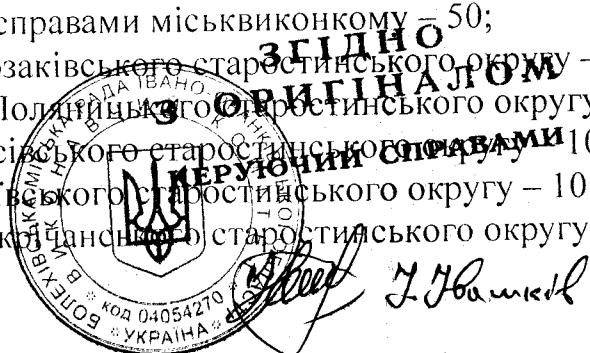 справами міськвиконкому – 50;
озаківського старостинського округу –
Поляницького старостинського округу
сівського старостинського округу – 10
ївського старостинського округу – 10
старостинського округу
ЗГІДНО
З ОРИГІНАЛОМ
КЕРУЮЧИЙ СПРАВАМИ
БОЛЕХІВСЬКА МІСЬКА РАДА ІВАНО-
код 04054270
УКРАЇНА